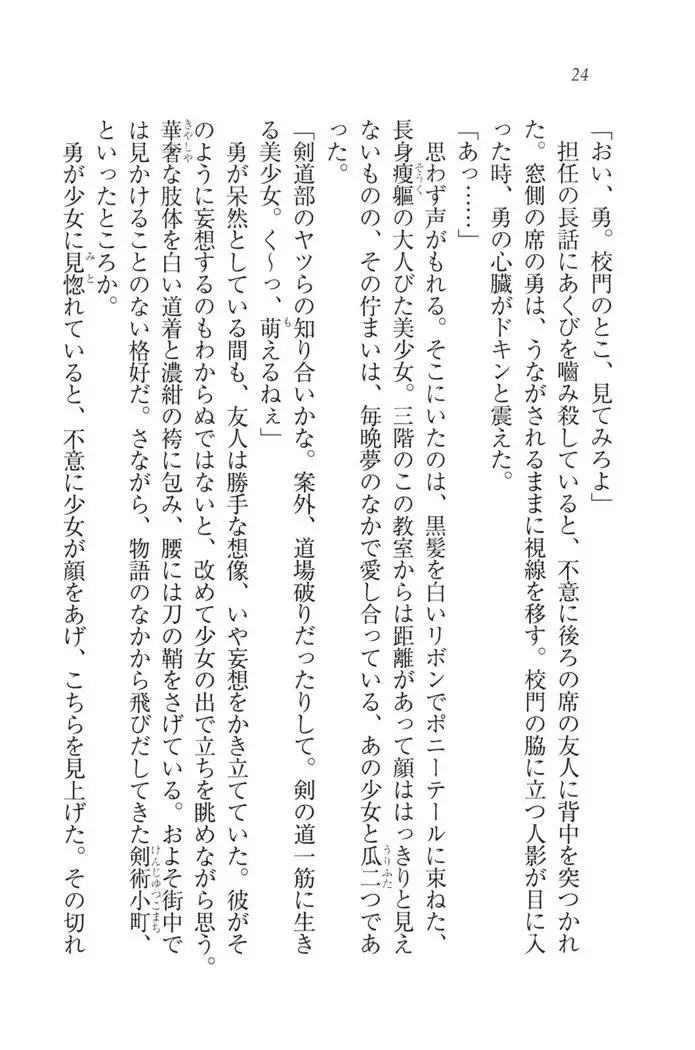 24
「おい、勇。校門のとこ、見てみろよ」
　担任の長話にあくびを嚙み殺していると、不意に後ろの席の友人に背中を突つかれ
た。窓側の席の勇は、うながされるままに視線を移す。校門の脇に立つ人影が目に入
った時、勇の心臓がドキンと震えた。
「あっ……」
　思わず声がもれる。そこにいたのは、黒髪を白いリボンでポニーテールに束ねた、
長身痩軀の大人びた美少女。三階のこの教室からは距離があって顔ははっきりと見え
ないものの、その佇まいは、毎晩夢のなかで愛し合っている、あの少女と瓜二つであ
った。
「剣道部のヤツらの知り合いかな。案外、道場破りだったりして。剣の道一筋に生き
る美少女。く～っ、萌えるねぇ」
　勇が呆然としている間も、友人は勝手な想像、いや妄想をかき立てていた。彼がそ
のように妄想するのもわからぬではないと、改めて少女の出で立ちを眺めながら思う。
華奢な肢体を白い道着と濃紺の袴に包み、腰には刀の鞘をさげている。およそ街中で
は見かけることのない格好だ。さながら、物語のなかから飛びだしてきた剣術小町、
といったところか。
　勇が少女に見惚れていると、不意に少女が顔をあげ、こちらを見上げた。その切れ